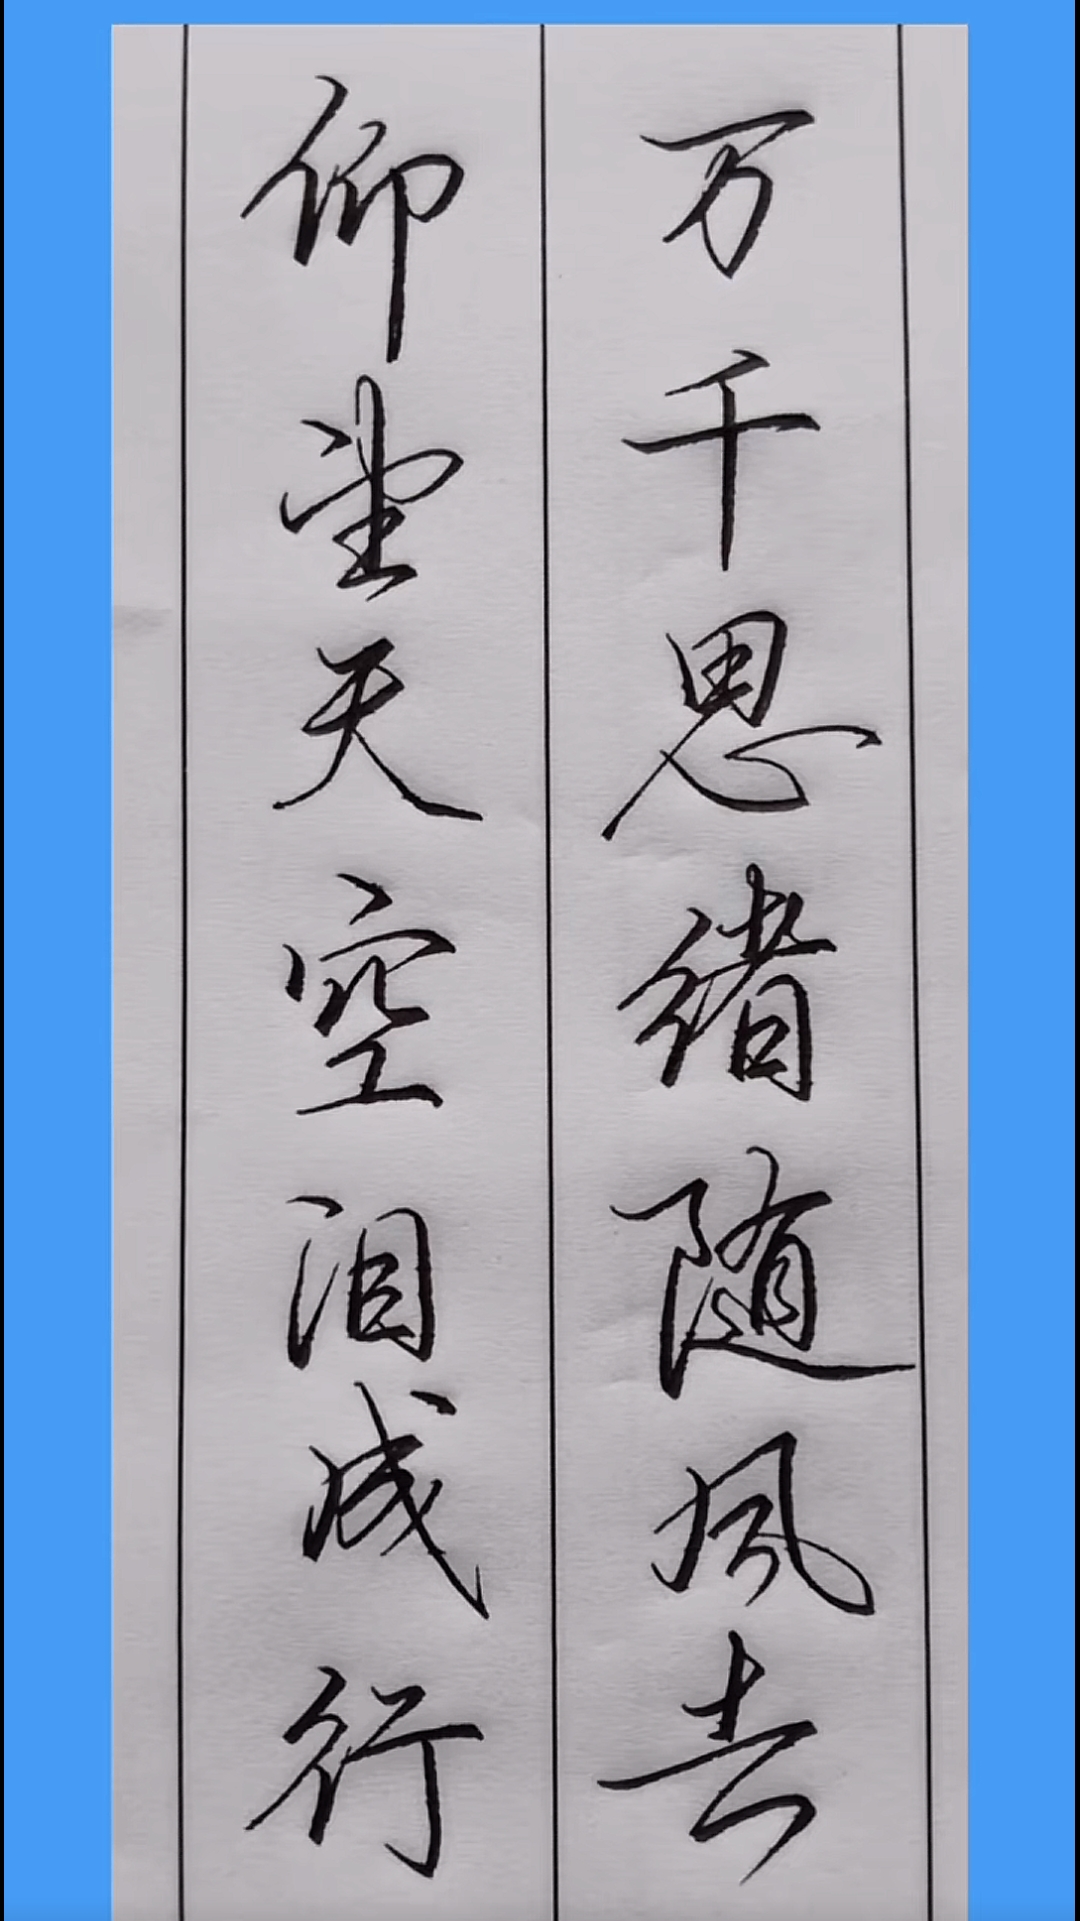 万千思绪随风去
仰望天空泪成行